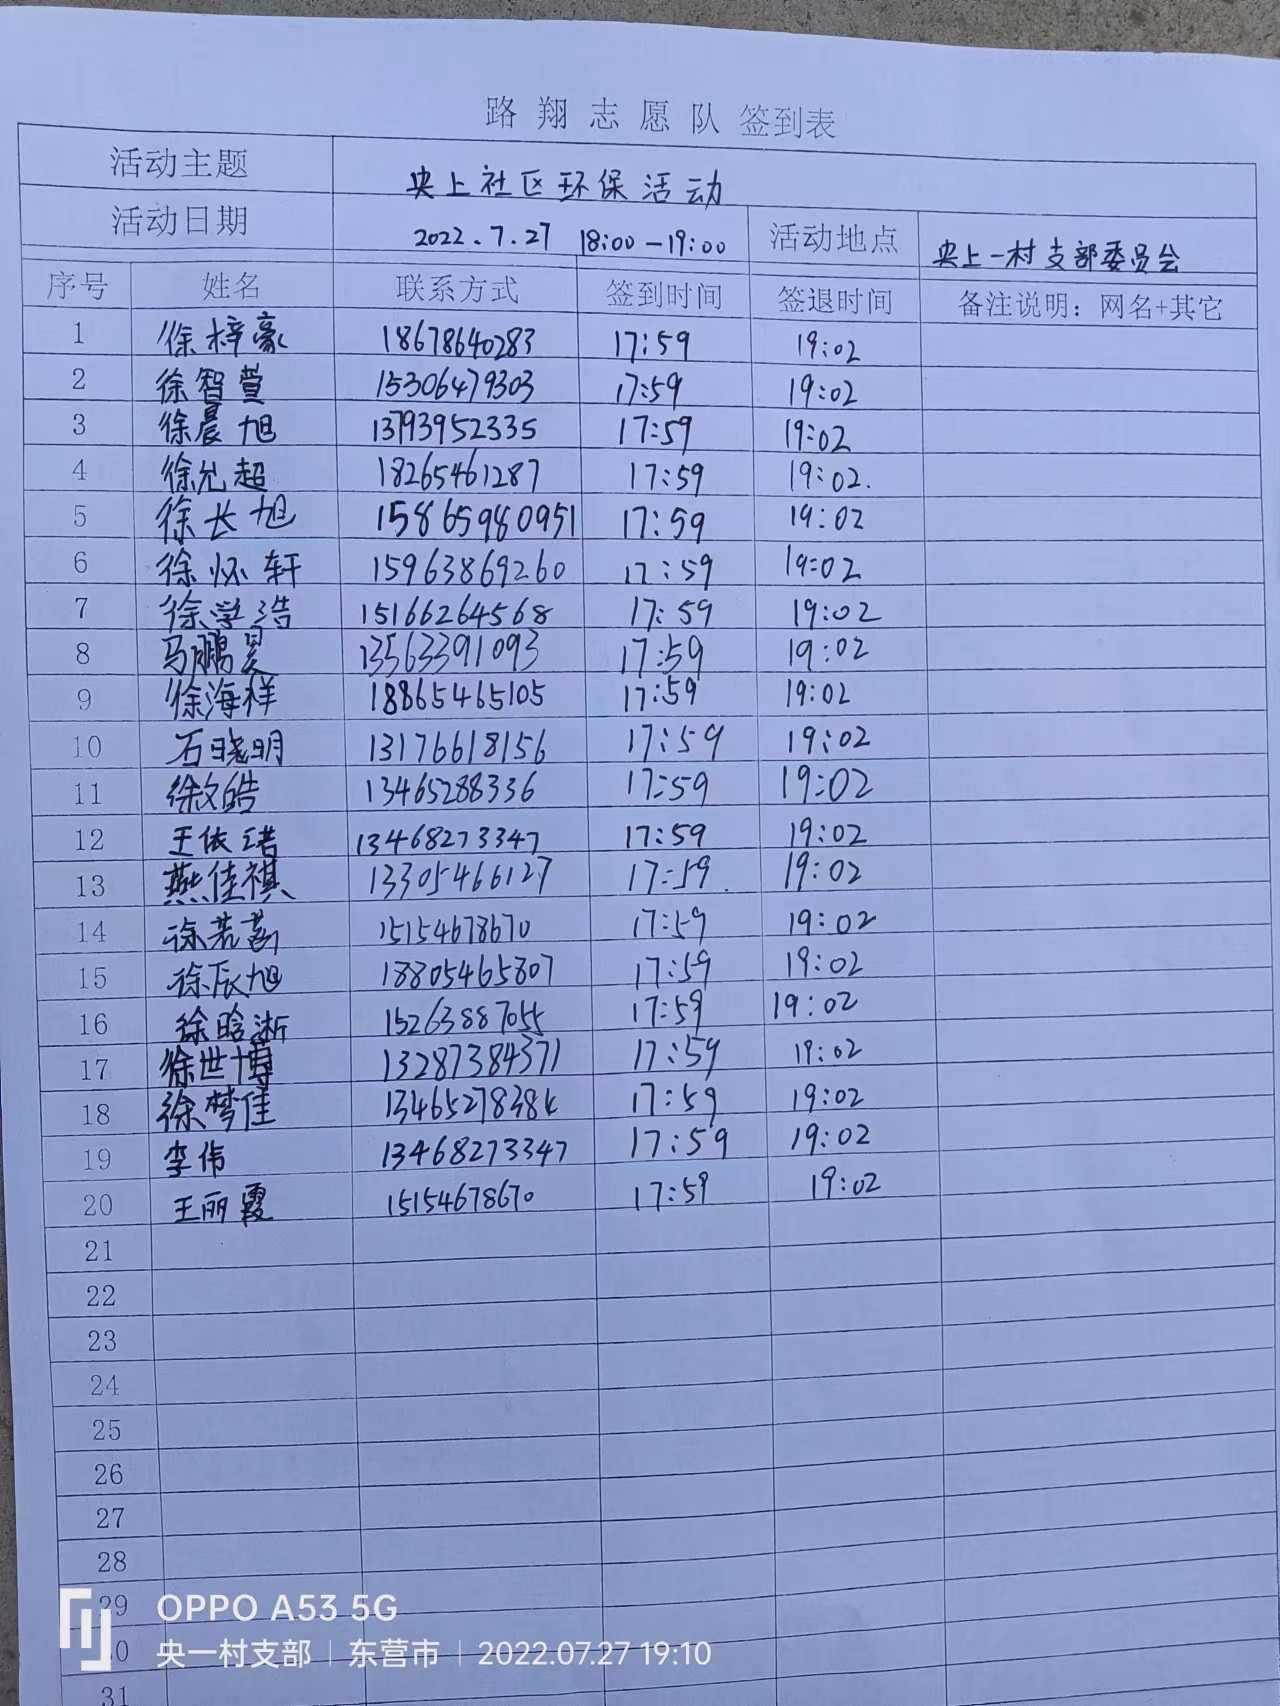 路翔志愿队 签到表
活动主题 央上社区环保活动
活动日期 2022.7.27 18:00-19:00 活动地点 央上一村支部委员会
序号 姓名 联系方式 签到时间 签退时间 备注说明：网名+其它
1 徐梓豪 18678640283 17:59 19:02
2 徐智萱 15306479303 17:59 19:02
3 徐晨旭 13793952335 17:59 19:02
4 徐允超 18265461287 17:59 19:02.
5 徐长旭 15865980951 17:59 19:02
6 徐怀轩 15963869260 17:59 19:02
7 徐学浩 15166264568 17:59 19:02
8 马鹏昊 13563391093 17:59 19:02
9 徐海祥 18865465105 17:59 19:02
10 石晓明 13176618156 17:59 19:02
11 徐文皓 13465288336 17:59 19:02
12 王依 13468273347 17:59 19:02
13 燕佳祺 13305466127 17:59 19:02
14 徐若 15154678670 17:59 19:02
15 徐辰旭 18805465807 17:59 19:02
16 徐晗淅 15263887055 17:59 19:02
17 徐世博 13287384371 17:59 19:02
18 徐梦佳 1346527838 17:59 19:02
19 李伟 13468273347 17:59 19:02
20 王丽霞 15154678670 17:59 19:02
21
22
23
24
25
26
27
28
29
30
31
OPPO A53 5G
央一村支部 | 东营市 | 2022.07.27 19:10